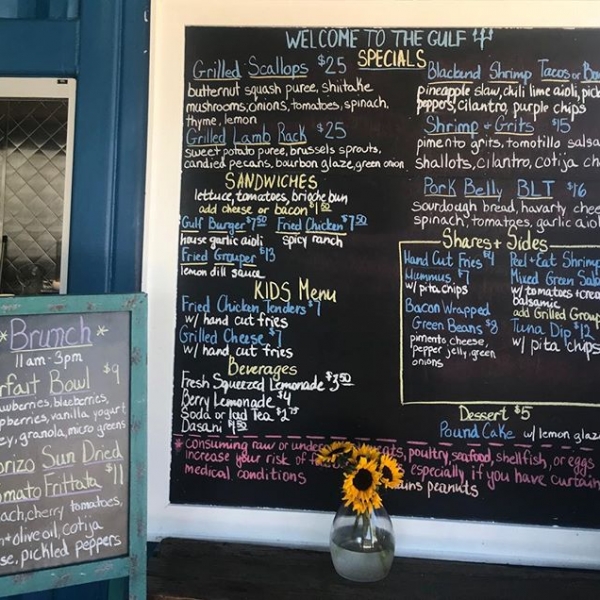 WELCOME TO THE GULF
SPECIALS
Grilled Scallops $25
butternut squash puree, shiitake
mushrooms, onions, tomatoes, spinach,
thyme, lemon
Grilled Lamb Rack $25
sweet potato puree, brussels sprouts,
candied pecans, bourbon glaze, green onion
SANDWICHES
lettuce, tomatoes, brioche bun
add cheese or bacon $1.50
Gulf Burger $7.50 Fried Chicken $7.50
house garlic aioli spicy ranch
Fried Grouper $13
lemon dill sauce
KIDS Menu
Fried Chicken Tenders $7
w/ hand cut fries
Grilled Cheese $7
w/ hand cut fries
Beverages
Fresh Squeezed Lemonade $3.50
Berry Lemonade $4
Soda or Iced Tea $2.75
Dasani $1.50
Blackend Shrimp Tacos or
pineapple slaw, chili lime aioli,
peppers, cilantro, purple chips
Shrimp + Grits $15
pimento grits, tomotillo salsa
shallots, cilantro, cotija
Pork Belly BLT $16
sourdough bread, havarty
spinach, tomatoes, garlic
Shares + Sides
Hand Cut Fries $4
Hummus $7
w/ pita chips
Bacon Wrapped
Green Beans $8
pimento cheese,
pepper jelly, green
onions
Peel + Eat Shrimp
Mixed Green
w/ tomatoes +
balsamic
add Grilled
Tuna Dip $12
w/ pita chips
Dessert $5
Pound Cake w/ lemon
* consuming raw or poultry, seafood, shellfish, or eggs
increase your risk of especially if you have curtain
medical conditions peanuts
*Brunch*
11am-3pm
Bowl $9
blueberries,
vanilla yogurt
granola, micro greens
Sun Dried
Frittata $11
cherry tomatoes,
olive oil, cotija
pickled peppers